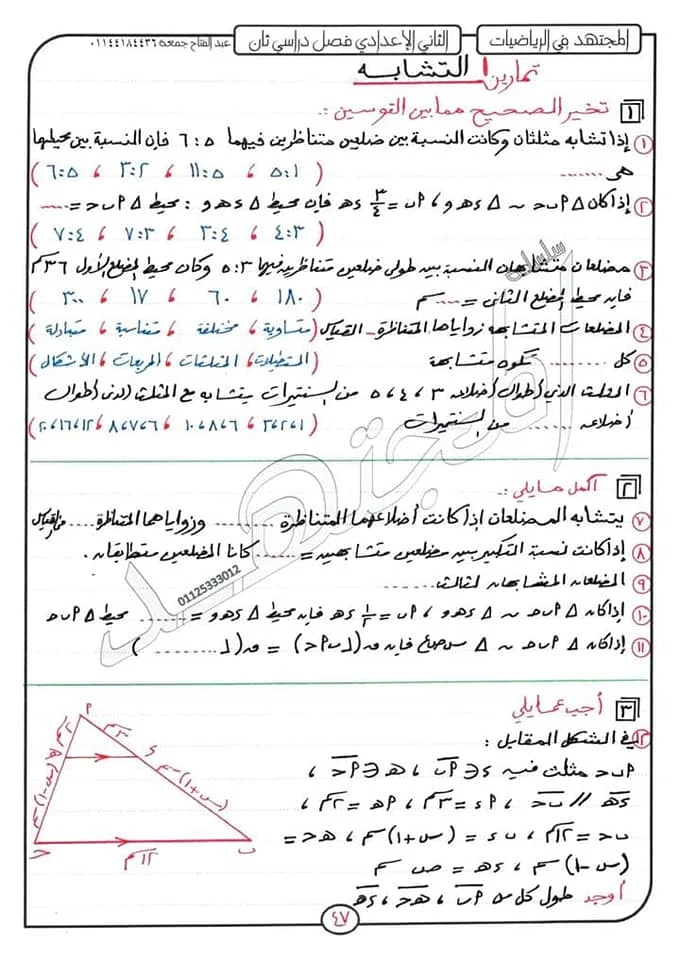 المجتهد في الرياضيات
الثاني الإعدادي فصل دراسي ثان
عبد الفتاح جمعه ٠١١٤٤١٨٤٤٣٦
تمارين ١ التشابه
١ تخير الصحيح مما بين القوسين :.
١ إذا تشابه مثلثان وكانت النسبة بين ضلعين متناظرين فيهما ٥ : ٦ فإن النسبة بين محيطيها
هى ........ ( ١:٥ ، ٥:١١ ، ٢:٣ ، ٥:٦ )
٢ إذا كان △ ٢ب حـ ~ △ ءهـ و ، ٢ب = ٣/٤ ءهـ فإن محيط △ ءهـ و : محيط △ ٢ب حـ = ....
( ٣:٤ ، ٤:٣ ، ٣:٧ ، ٤:٧ )
٣ مضلعان متشابهان النسبة بين طولى ضلعين متناظرين فيهما ٣:٥ وكان محيط المضلع الأول ٣٦ سم
فإن محيط المضلع الثانى = .... سم ( ١٨٠ ، ٦٠ ، ١٧ ، ٣٠٠ )
٤ المضلعات المتشابهة زواياها المتناظرة .. القياس ( متساوية ، مختلفة ، متناسبة ، متبادلة )
٥ كل ........ تكون متشابهة ( المستطيلات ، المثلثات ، المربعات ، الأشكال )
٦ المثلث الذى أطوال أضلاعه ٣ ، ٤ ، ٥ من السنتيمترات يتشابه مع المثلث الذى أطوال
أضلاعه ........ من السنتيمترات ( ٣،٢،١ ، ٦،٨،١٠ ، ٦،٧،٨ ، ١٢،١٦،٢٠ )
٢ أكمل ما يلى :.
٧ يتشابه المضلعان إذا كانت أضلاعهما المتناظرة ........ وزواياهما المتناظرة ..... فى القياس
٨ إذا كانت نسبة التكبير بين مضلعين متشابهين = ...... كانا المضلعين متطابقان.
٩ المضلعان المشابهان لثالث........
١٠ إذا كان △ ٢ب حـ ~ △ ءهـ و ، ٢ب = ١/٢ ءهـ فإن محيط △ ءهـ و = ...... محيط △ ٢ب حـ
١١ إذا كان △ ٢ب حـ ~ △ س ص ع فإن ق(∠ ب ٢ حـ) = ق(∠ ........ )
٣ أجب عما يلي
١٢ فى الشكل المقابل :
٢ب حـ مثلث فيه ء ∈ ٢ب ، هـ ∈ ٢حـ ،
ءهـ // ب حـ ، ٢ء = ٣سم ، ٢هـ = ٢سم ،
ب حـ = ١٢سم ، ب ء = (س+١) سم ، هـ حـ =
(س-١) سم ، ءهـ = ص سم
أوجد طول كل من ٢ب ، هـ حـ ، ءهـ
٢
٢سم
٣سم
هـ
ء
(س-١) سم
(س+١) سم
حـ
ب
١٢سم
سلسلة
المجتهد
01125333012
٤٧